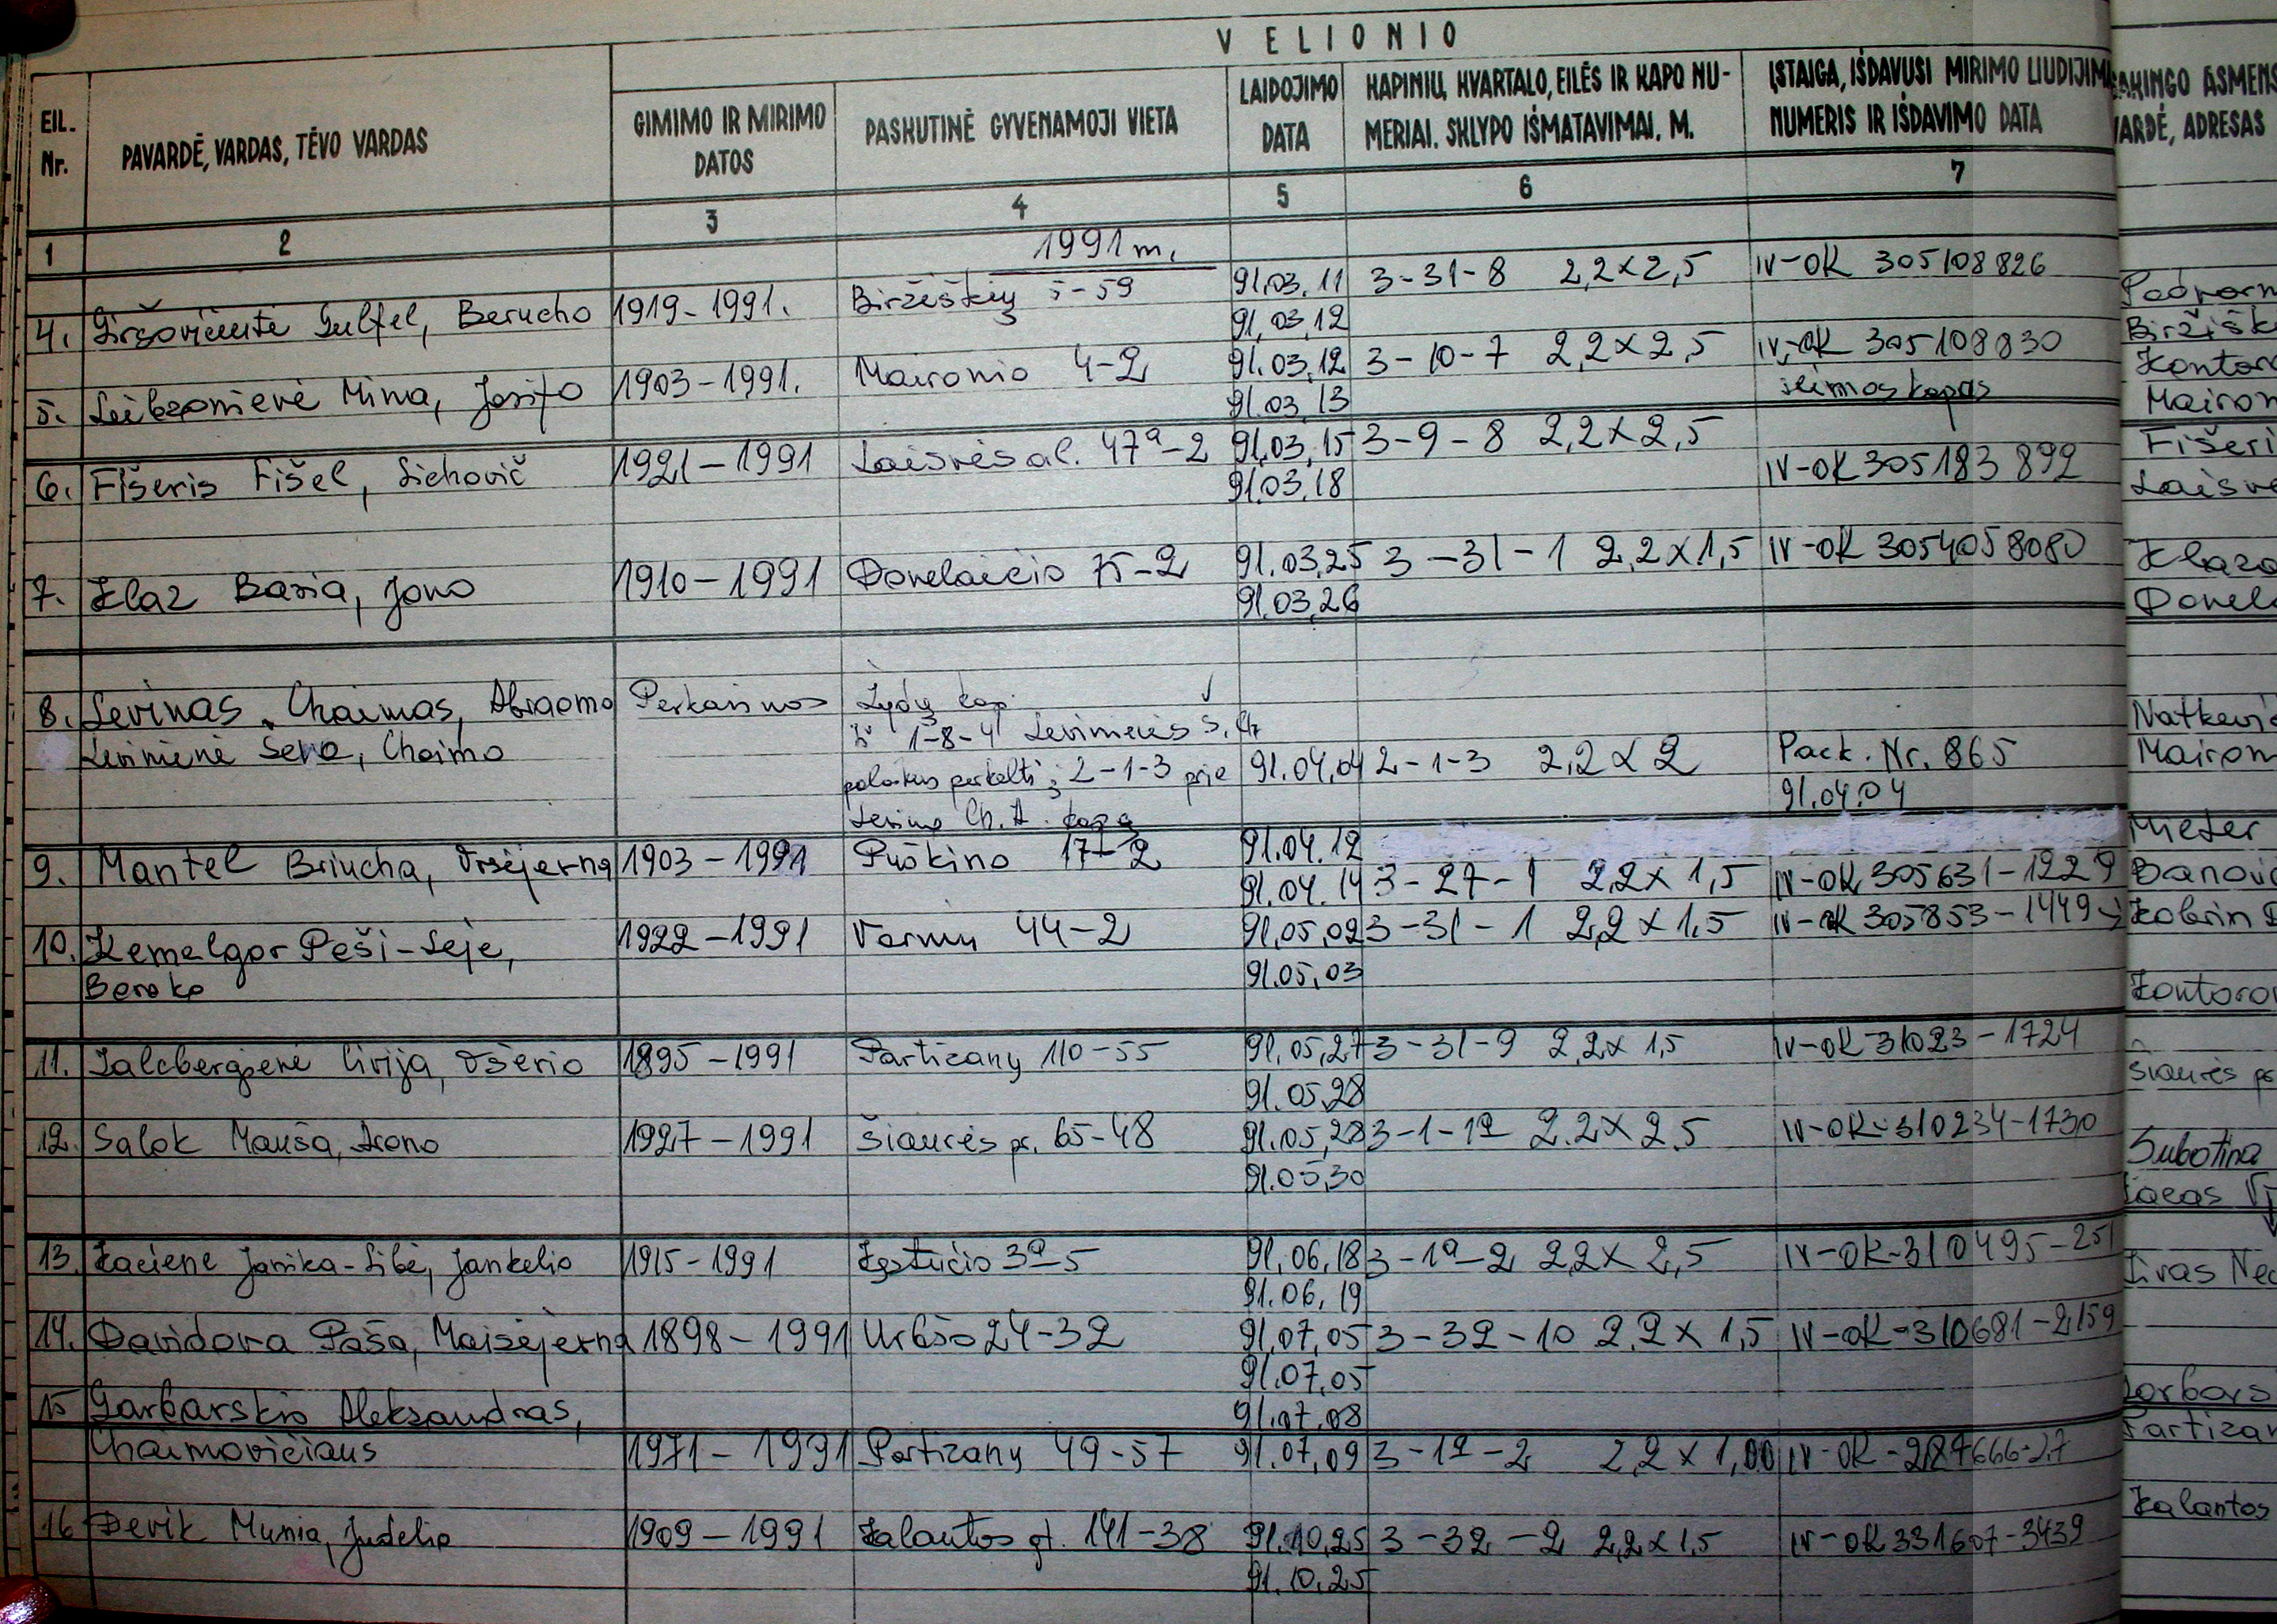 VELIONIO
EIL. Nr.
PAVARDĖ, VARDAS, TĖVO VARDAS
GIMIMO IR MIRIMO DATOS
PASKUTINĖ GYVENAMOJI VIETA
LAIDOJIMO DATA
KAPINIŲ, KVARTALO, EILĖS IR KAPO NU-
MERIAI. SKLYPO IŠMATAVIMAI. M.
ĮSTAIGA, IŠDAVUSI MIRIMO LIUDIJIM
NUMERIS IR IŠDAVIMO DATA
ASMENS
ADRESAS
1 2 3 4 5 6 7
1991 m.
4. Berucho 1919-1991. Biržiškių 5-59 91.03.11 3-31-8 2,2x2,5 IV-OK 305108826
91.03.12 Biržišk
5. Leibzonienė Mina, Josifo 1903-1991. Maironio 4-2 91.03.12 3-10-7 2,2x2,5 IV-OK 305108830
91.03.13 šeimos kapas Mairon
6. Fišeris Fišel, 1921-1991 Laisvės al. 47ª-2 91.03.15 3-9-8 2,2x2,5 Fišeri
91.03.18 IV-OK 305183892 Laisv
7. Klaz Basia, Jono 1910-1991 Donelaičio 75-2 91.03.25 3-31-1 2,2x1,5 IV-OK 3054058080
91.03.26 Donel
8. Levinas Chaimas, Abraomo Perkasimas Žydų kap.
Levinienė Seva, Chaimo Iš 1-8-4 Levinienės S. Ch.
palaikus perkelti į 2-1-3 prie 91.04.04 2-1-3 2,2x2 Pack. Nr. 865 Mairon
Levino Ch. A. kapą 91.04.04
9. Mantel Briucha, 1903-1991 Puškino 17-2 91.04.12
91.04.14 3-27-1 2,2x1,5 IV-OK 305631-1229
10. Kemelgor Peši-Leje, 1922-1991 Varnių 44-2 91.05.02 3-31-1 2,2x1,5 IV-OK 305853-1449 Kobrin
Beroko 91.05.03
11. Zalcbergienė Civija, Ošerio 1895-1991 Partizanų 110-55 91.05.27 3-31-9 2,2x1,5 IV-OK-31023-1724
91.05.28 Šiaurės pr
12. Salok Mauša, Arono 1927-1991 Šiaurės pr. 65-48 91.05.28 3-1-1ª 2,2x2,5 IV-OK-310234-1730
91.05.30 Subotina
13. Kacienė Jankelio 1915-1991 Kęstučio 3ª-5 91.06.18 3-1ª-2 2,2x2,5 IV-OK-310495-251
91.06.19
14. Davidova Paša, Maisėjerna 1898-1991 Urbšo 24-32 91.07.05 3-32-10 2,2x1,5 IV-OK-310681-2159
91.07.05
15 Garbarskis Aleksandras, 91.07.08
Chaimovičiaus 1971-1991 Partizanų 49-57 91.07.09 3-1ª-2 2,2x1,00 IV-OK-287666-27 Partizan
16 Devik Munia, Judelio 1909-1991 Kalantos gt. 141-38 91.10.25 3-32-2 2,2x1,5 IV-OK 331607-3439 Kalantos
91.10.25